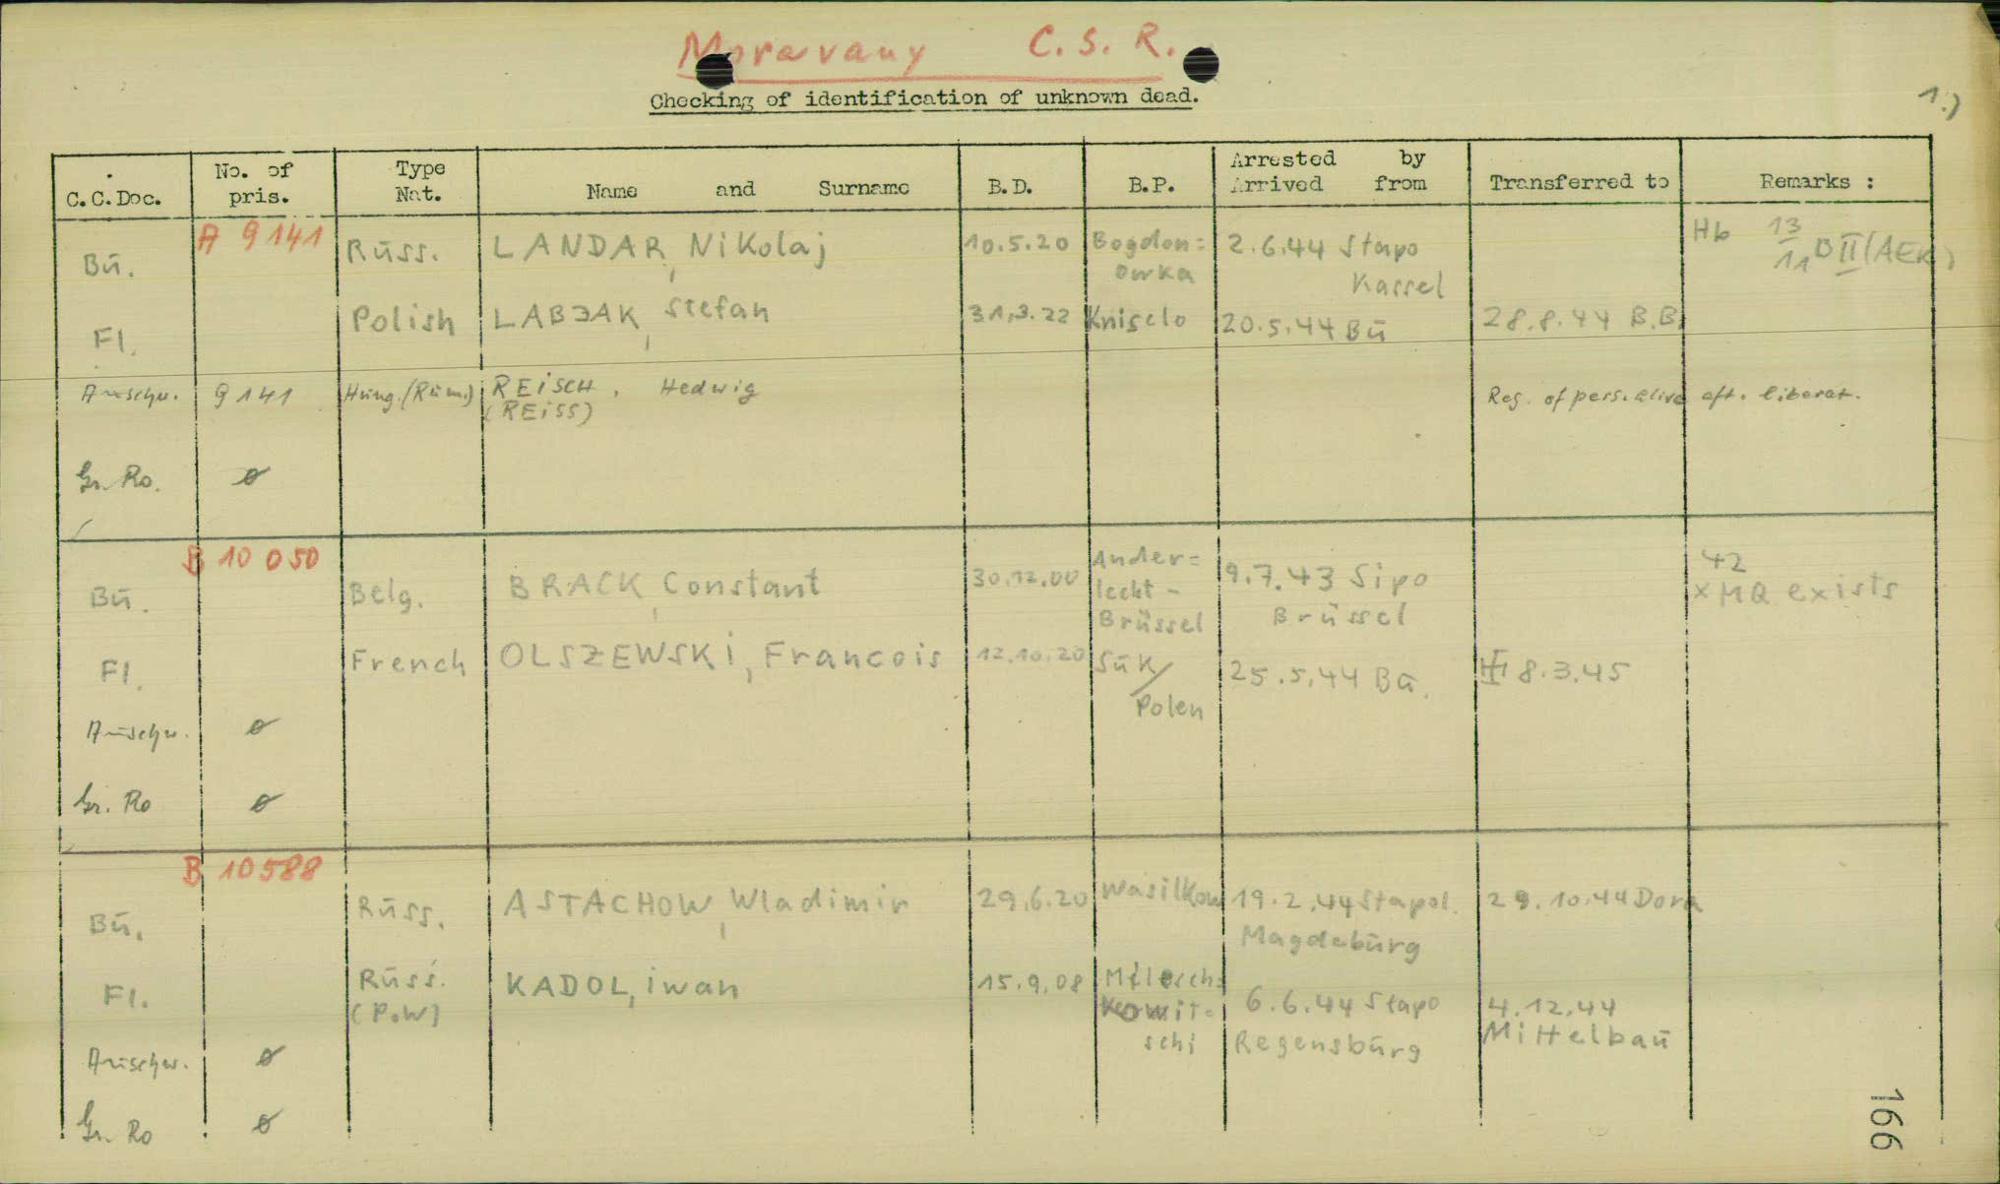 Moravany C.S.R.
Checking of identification of unknown dead.
1.)
C.C.Doc. No. of pris. Type Nat. Name and Surname B.D. B.P. Arrested by Arrived from Transferred to Remarks :
A 9141
Bū. Rūss. LANDAR, Nikolaj 10.5.20 Bogdon= owka 2.6.44 Stapo Kassel Hb 13 11 D II (AEK)
Fl. Polish LABJAK, Stefan 31.3.22 Knisclo 20.5.44 Bū 28.8.44 B.B.
Aūschw. 9141 Hūng.(Rūm.) REiSCH, Hedwig Reg. of pers. alive aft. liberat.
(REiSS)
Gr. Ro. ø
B 10 050
Bū. Belg. BRACK, Constant 30.12.00 Ander= lecht - Brüssel 9.7.43 Sipo Brüssel 42 x MQ exists
Fl. French OLSZEWSKi, Francois 12.10.20 Sūk/ Polen 25.5.44 Bū. 8.3.45
Aūschw. ø
Gr. Ro ø
B 10588
Bū. Rūss. ASTACHOW, Wladimir 29.6.20 Wasilkow 19.2.44 Stapol. Magdebūrg 29.10.44 Dora
Fl. Rūss. (P.W) KADOL, iwan 15.9.08 6.6.44 Stapo Regensbūrg 4.12.44 Mittelbaū
Aūschw. ø
Gr. Ro ø
166